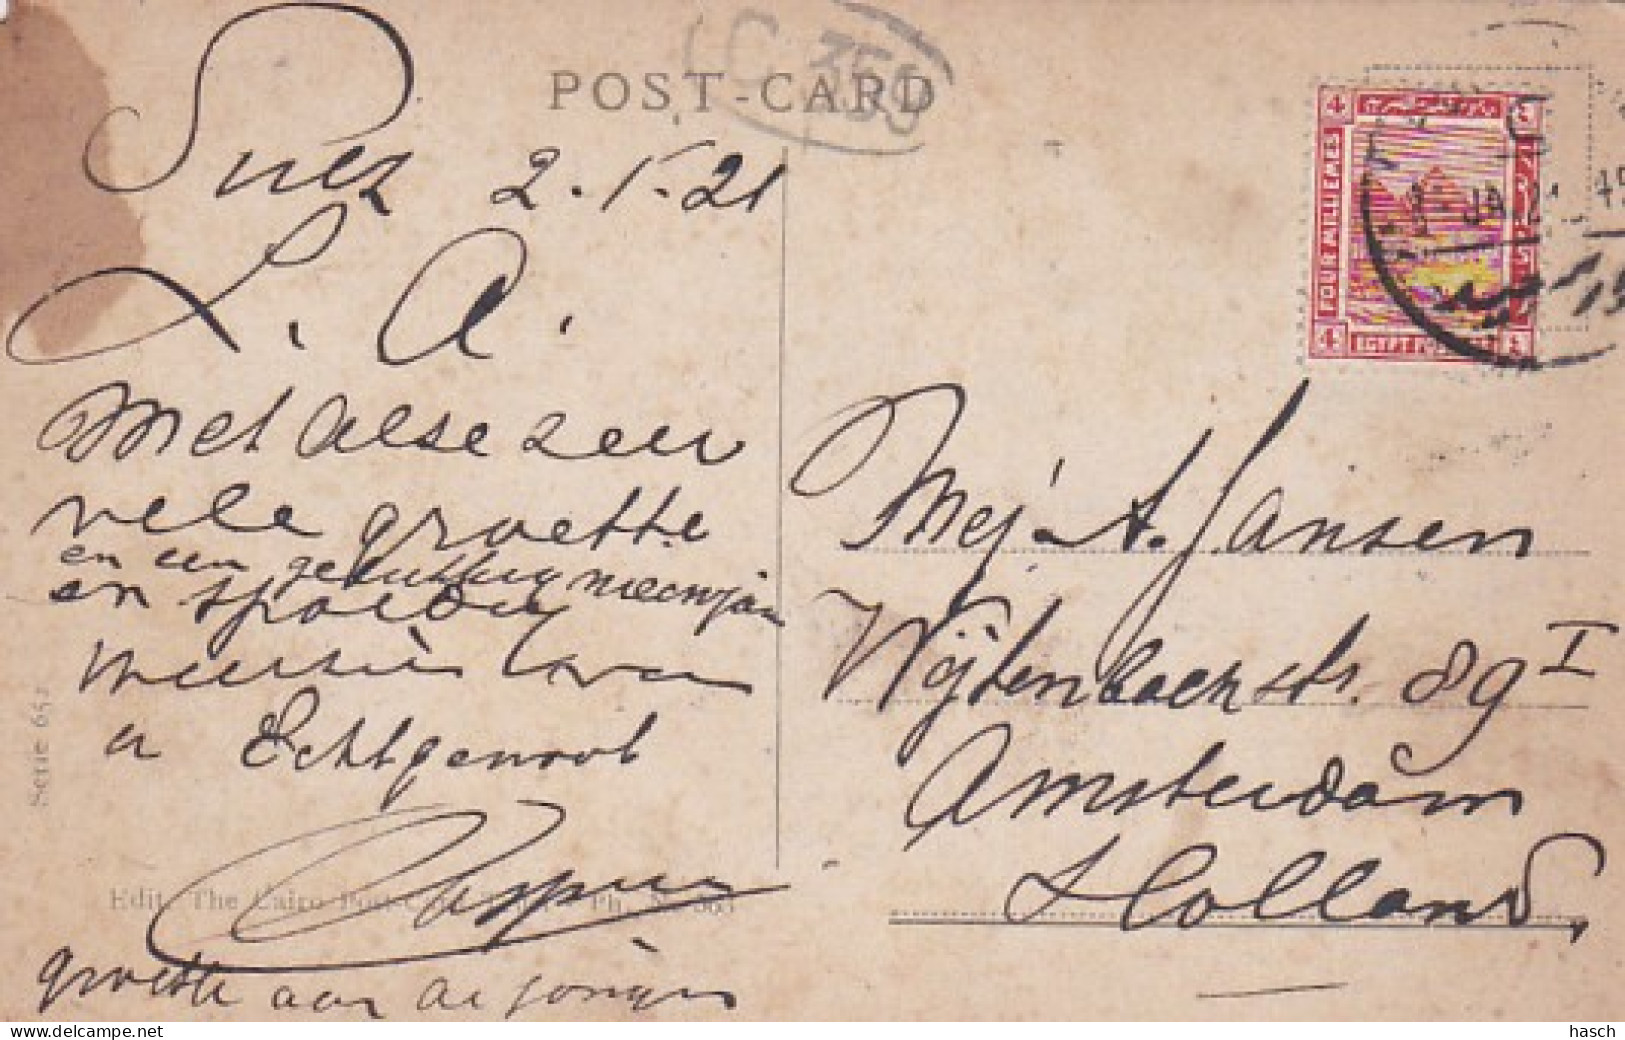 POST-CARD
CC 350
Suez 2.1.21
L. A.
Met alse zeer
vele groette
en een gelukkig nieuwjaar
en spoedig
weerzien
Echtgenoot
Caspar
groette aan de jongens
Serie 657
Edit. The Cairo Post-Card Ph. No. 363
4
FOUR MILLIEMES
4
EGYPT
Mej. A. Jansen
Wijtenbachstr. 89 I
Amsterdam
Holland.
hasch